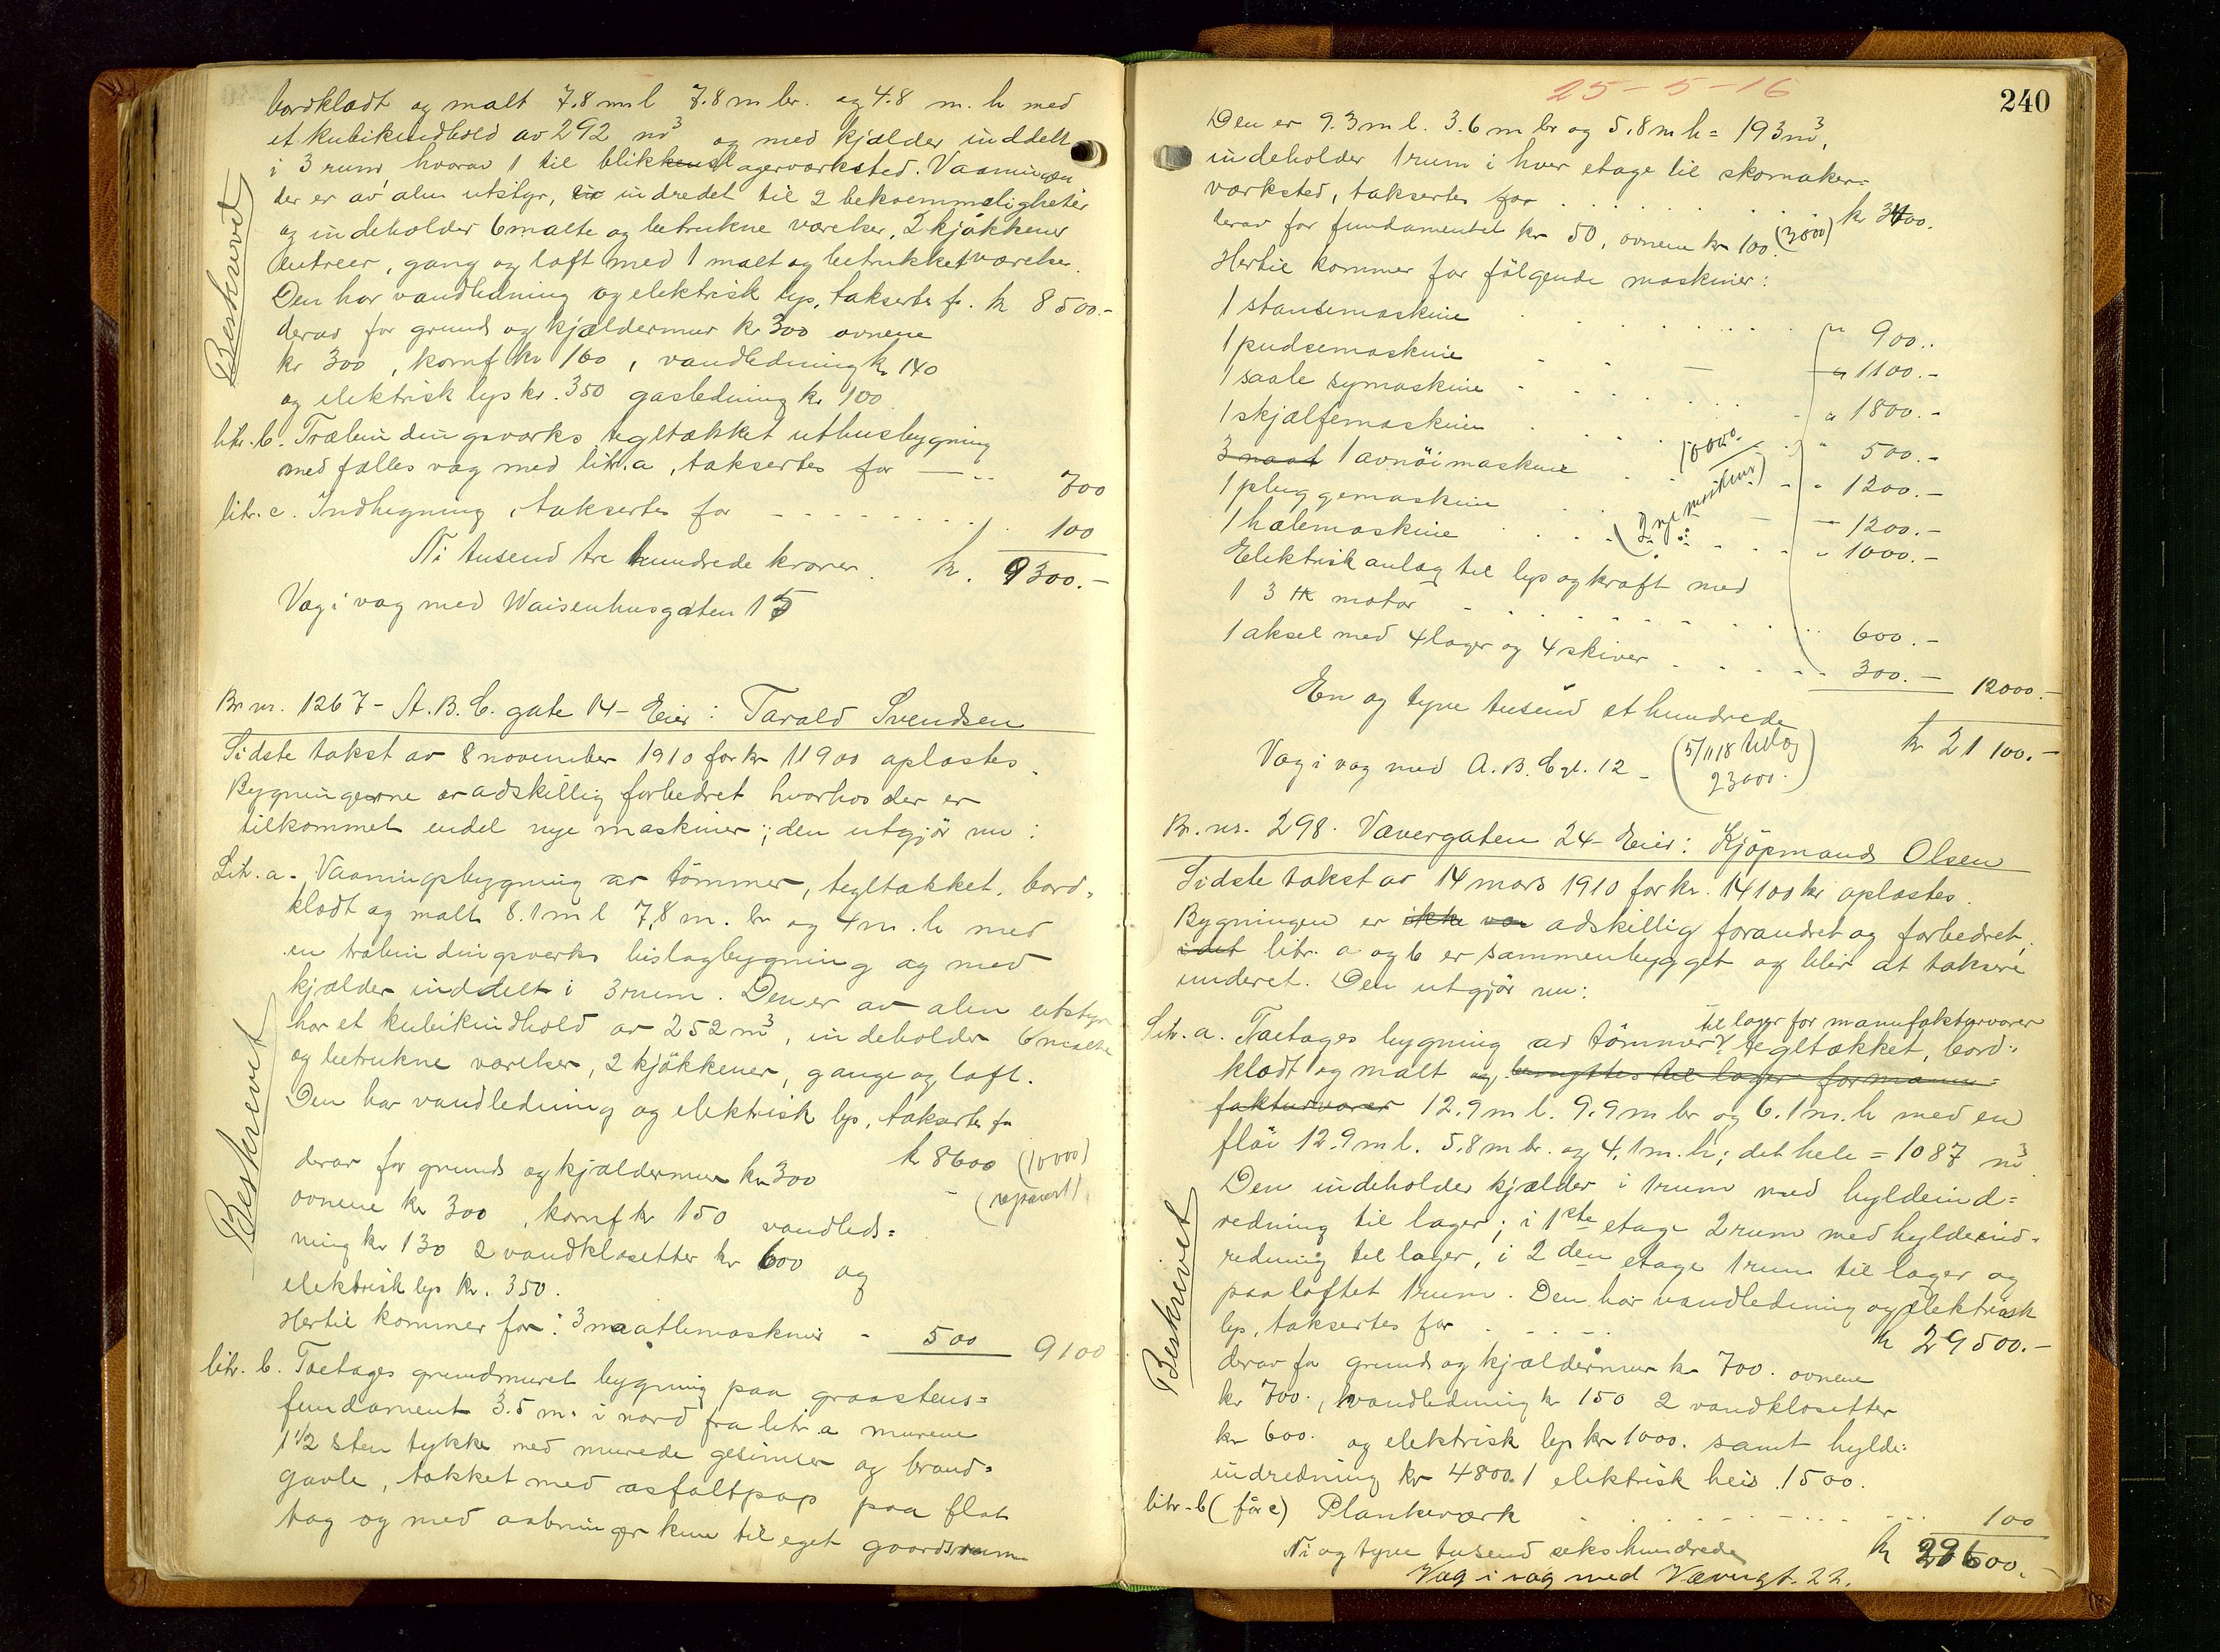 bordklædt og malt 7.8 m l 7.8 m br. og 4.8 m. h med
et kubikindhold av 292 m³ og med kjælder inddelt
i 3 rum hvorav 1 til blikkenslagerværksted. Vaaningen
der er av alm utstyr, er indredet til 2 bekvemmeligheter
og indeholder 6 malte og betrukne værelser, 2 kjøkkener
entreer, gang og loft med 1 malt og betrukket værelse.
Den har vandledning og elektrisk lys, takserte f. kr 8500.-
derav for grund og kjældermur kr 300 ovnene
kr 300, komf kr 160, vandledning kr 140
og elektrisk lys kr. 350 gasledning kr 100
Beskrevet
litr. b. Træbindingsværks tegltækket uthusbygning
med fælles væg med litr. a, taksertes for - .. 700
litr. c. Indhegning, taksertes for - - - - - 100
Ni tusend tre hundrede kroner. kr. 9300.-
Væg i væg med Waisenhusgaten 15
Br. nr. 1267 - A.B.C. gate 14 - Eier: Tarald Svendsen
Sidste takst av 8 november 1910 for kr 11900 oplæstes.
Bygningerne er adskillig forbedret hvorhos der er
tilkommet endel nye maskiner; den utgjør nu:
Litr. a. Vaaningsbygning av tømmer, tegltækket, bord-
klædt og malt 8.1 m l 7,8 m. br og 4 m. h med
en træbindingsverks bislagbygning og med
kjælder inddelt i 3 rum. Den er av alm utstyr
har et kubikindhold av 252 m³, indeholder 6 malte
og betrukne værelser, 2 kjøkkener, gange og loft.
Den har vandledning og elektrisk lys, taksertes for
kr 8600 (10000)
derav for grund og kjældermur kr 300
- (reparert)
ovnene kr 300, komf kr 150 vandled=
ning kr 130 2 vandklosetter kr 600 og
elektrisk lys kr. 350.
Beskrevet
Hertil kommer for: 3 naatlemaskiner - 500 9100
litr. b. Toetages grundmuret bygning paa graastens=
fundament 3.5 m. i nord fra litr. a murene
1 1/2 sten tykke med murede gesimser og brand=
gavle, tækket med asfaltpap paa flat
tag og med aabninger kun til eget gaardsrum.
25-5-16
240
Den er 9.3 m l. 3.6 m br og 5.8 m h = 193 m³,
indeholder 1 rum i hver etage til skomaker=
værksted, taksertes for . . . . . kr
derav for fundamentet kr 50, ovnene kr 100. (3800)
Hertil kommer for følgende maskiner:
1 stansemaskine . . . . . " 900..
1 pudsemaskine - - - " 1100.-
1 saale symaskine - . . . - " 1800.-
1 skjælfemaskine . . . . " 500.-
3 naat 1 avnøimaskine . . - " 1200.-
1 pluggemaskine . . - - 1200.-
1 hælemaskine . . . . - " 1000.-
18000.
(2 nye maskiner)
Elektrisk anlæg til lys og kraft med
1 3 HK motor - - - - - 600.-
1 aksel med 4 lager og 4 skiver - - - 300.- 12000.-
En og tyve tusend et hundrede
kr 21100.-
Væg i væg med A.B.C gt. 12 - (5/11 18 tillæg
23000.)
Br. nr. 298. Vævergaten 24 - Eier: Kjøpmand Olsen
Sidste takst av 14 mars 1910 for kr. 14100 kr oplæstes.
Bygningen er ikke var adskillig forandret og forbedret,
idet litr. a og b er sammenbygget og blir at taksere
underet. Den utgjør nu:
til lager for manufakturvarer
Litr. a. Toetages bygning av tømmer tegltækket, bord=
klædt og malt og benyttes til lager for manu=
fakturvarer 12.9 m l. 9.9 m br og 6.1 m. h med en
fløi 12.9 m l. 5.8 m br. og 4.1 m. h; det hele = 1087 m³.
Den indeholder kjælder i 1 rum med hyldeind=
redning til lager; i 1ste etage 2 rum med hyldeind=
redning til lager, i 2den etage 1 rum til lager og
paa loftet 1 rum. Den har vandledning og elektrisk
lys, taksertes for . - - - . kr 29500.-
derav for grund og kjældermur kr 700. ovnene
kr 700., vandledning kr 150 2 vandklosetter
kr 600. og elektrisk lys kr 1000. samt hylde=
indredning kr 4800. 1 elektrisk heis 1500.
Beskrevet
litr. b (før c) Plankeværk . . - - - - 100
Ni og tyve tusend sekshundrede kr 29600.-
Væg i væg med Vævergt. 22.